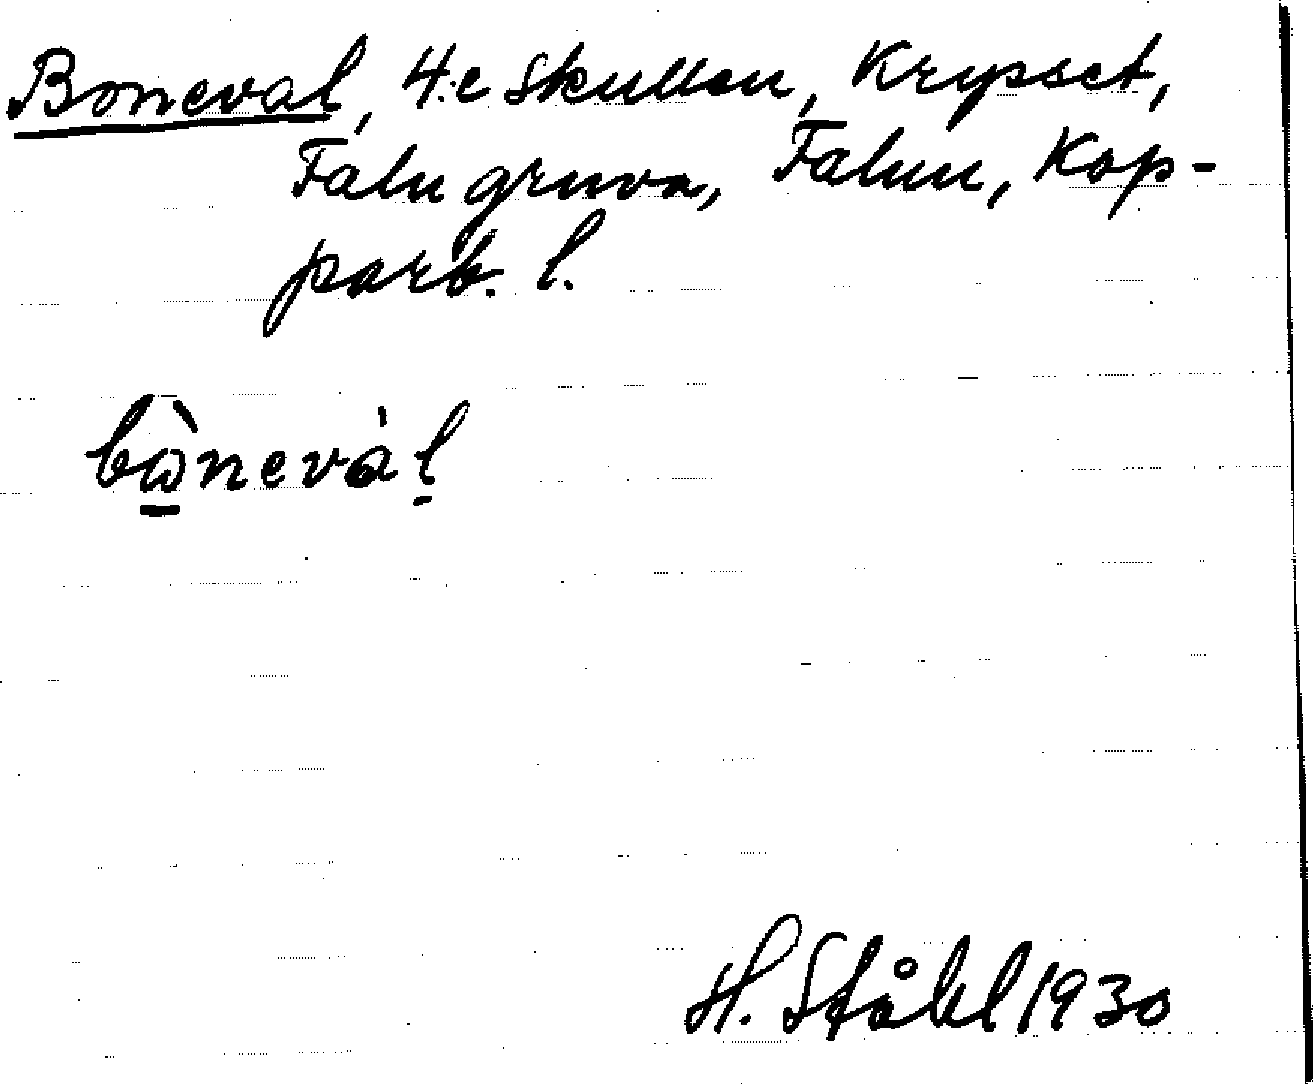 Boneval, 4:e Skullen, Krypset,
Falu gruva, Falun, Kop-
parb. l.
bὼ̠nevàḷ
H. Ståhl 1930